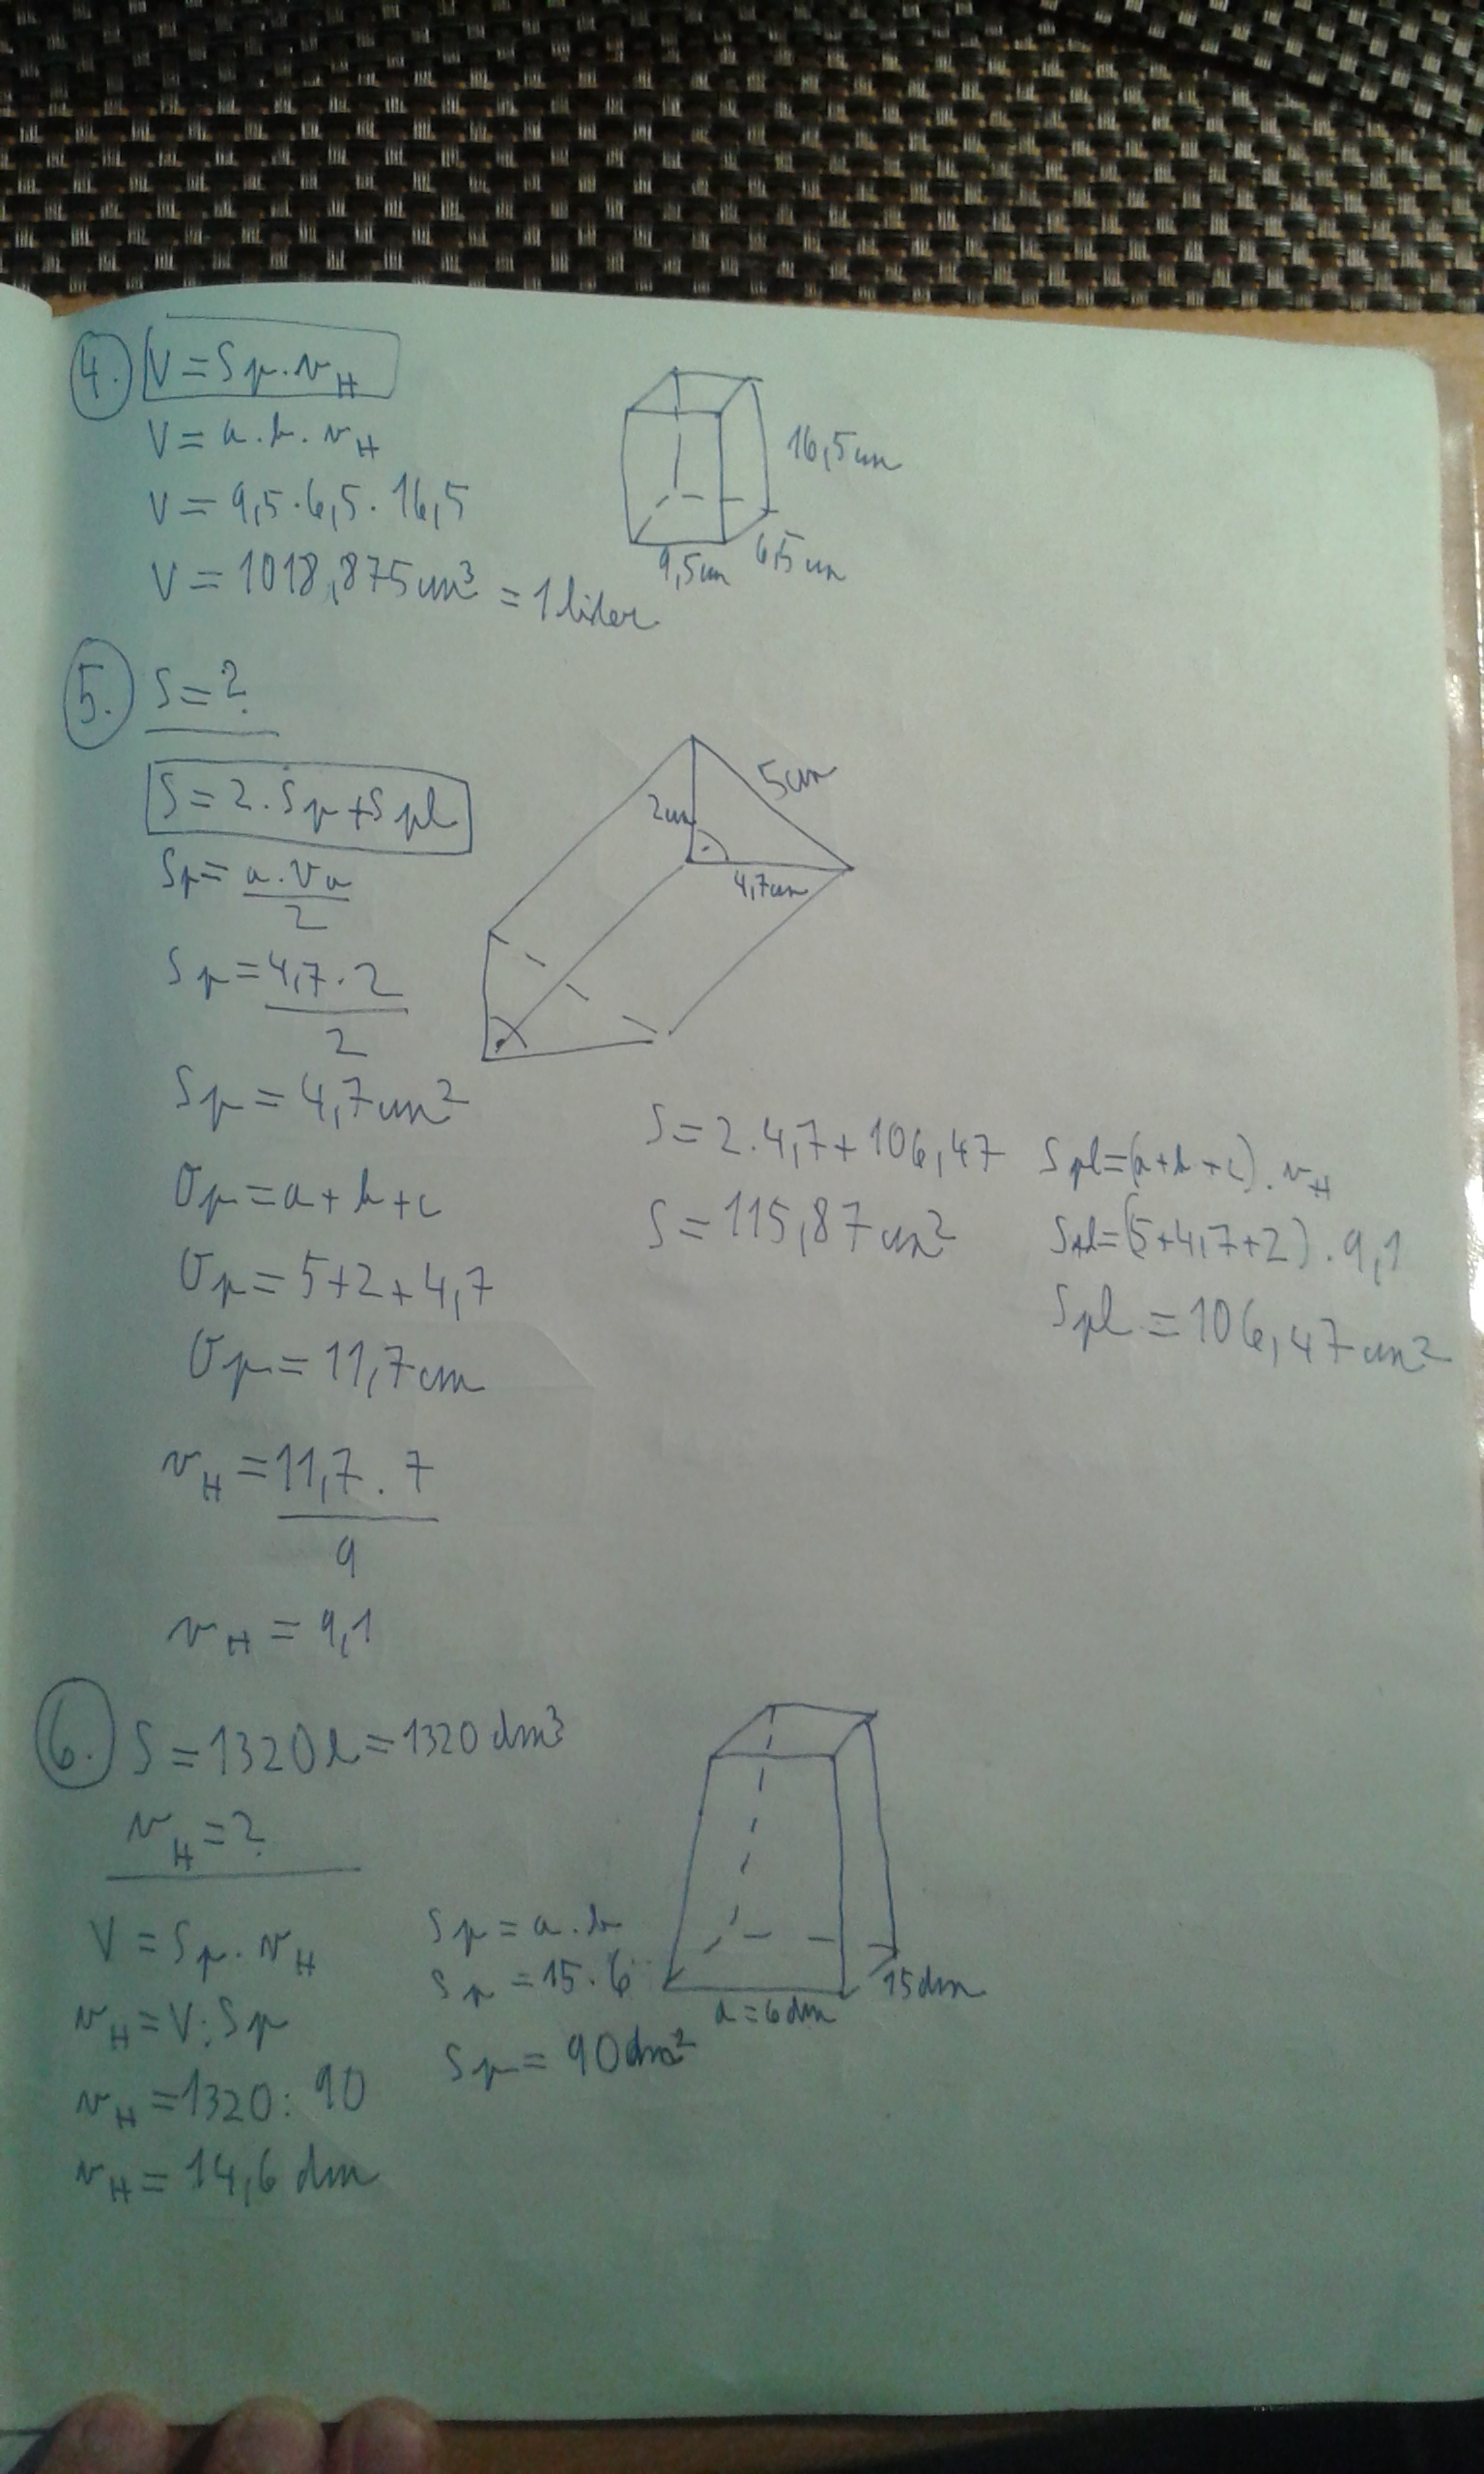 4. V = Sp . vH
V = a . b . vH
V = 9,5 . 6,5 . 16,5
V = 1018,875 cm³ = 1 liter
16,5 cm
6,5 cm
9,5 cm
5. S = ?
S = 2 . Sp + Spl
Sp = a . va / 2
Sp = 4,7 . 2 / 2
Sp = 4,7 cm²
5 cm
2 cm
4,7 cm
Op = a + b + c
Op = 5 + 2 + 4,7
Op = 11,7 cm
vH = 11,7 . 7 / 9
vH = 9,1
S = 2 . 4,7 + 106,47
S = 115,87 cm²
Spl = (a + b + c) . vH
Spl = (5 + 4,7 + 2) . 9,1
Spl = 106,47 cm²
6. S = 1320 l = 1320 dm³
vH = ?
V = Sp . vH
vH = V : Sp
vH = 1320 : 90
vH = 14,6 dm
Sp = a . b
Sp = 15 . 6
Sp = 90 dm²
a = 6 dm
15 dm